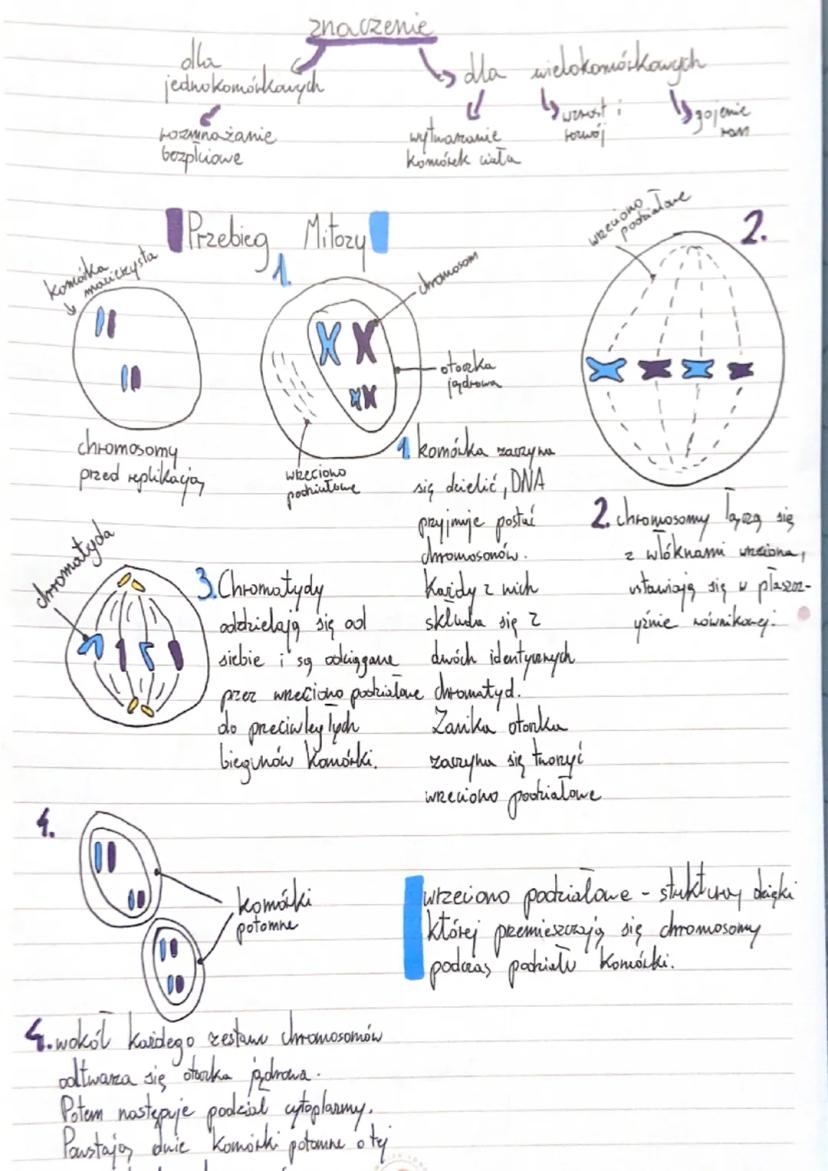 znaczenie
dla
jednokomórkowych
rozmnażanie
bezpłciowe
dla wielokomórkowych
wytwarzanie
komórek ciała
wzrost i
rozwój
gojenie
ran
Przebieg Mitozy
komórka
macierzysta
chromosomy
przed replikacją
1.
chromosom
otoczka
jądrowa
wrzeciono
podziałowe
2.
wrzeciono
podziałowe
1. komórka zaczyna
się dzielić, DNA
przyjmuje postać
chromosomów.
Każdy z nich
składa się z
dwóch identycznych
chromatyd.
Zanika otoczka
zaczyna się tworzyć
wrzeciono podziałowe
2. chromosomy łączą się
z włóknami wrzeciona,
ustawiają się w płaszcz-
yźnie równikowej.
chromatyda
3. Chromatydy
oddzielają się od
siebie i są odciągane
przez wrzeciono podziałowe
do przeciwległych
biegunów komórki.
4.
komórki
potomne
wrzeciono podziałowe - struktury dzięki
której przemieszczają się chromosomy
podczas podziału komórki.
4. wokół każdego zestawu chromosomów
odtwarza się otoczka jądrowa.
Potem następuje podział cytoplazmy.
Powstają dwie komórki potomne o tej